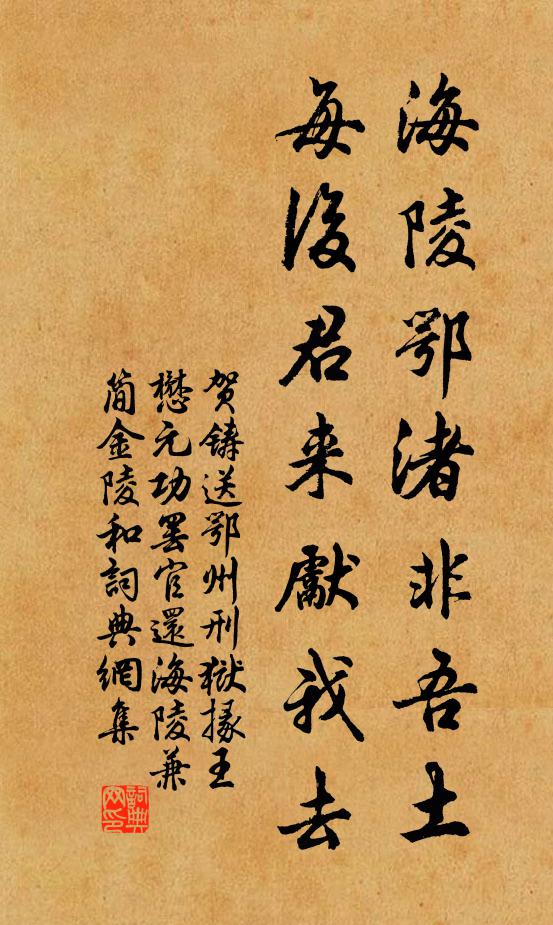 海陵鄂渚非吾土
每後君来獻我去
贺鑄送鄂州刑獄掾王
懋元功罢官還海陵兼
简金陵和詞典網集
詞典
网印